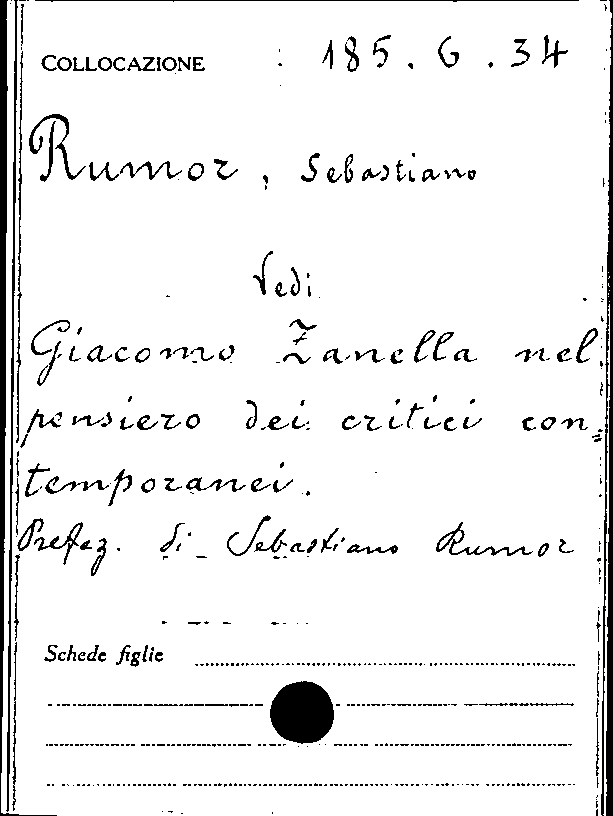 COLLOCAZIONE : 185. G. 34
Rumor, Sebastiano
Vedi
Giacomo Zanella nel
pensiero dei critici con=
temporanei.
Prefaz. di Sebastiano Rumor
Schede figlie